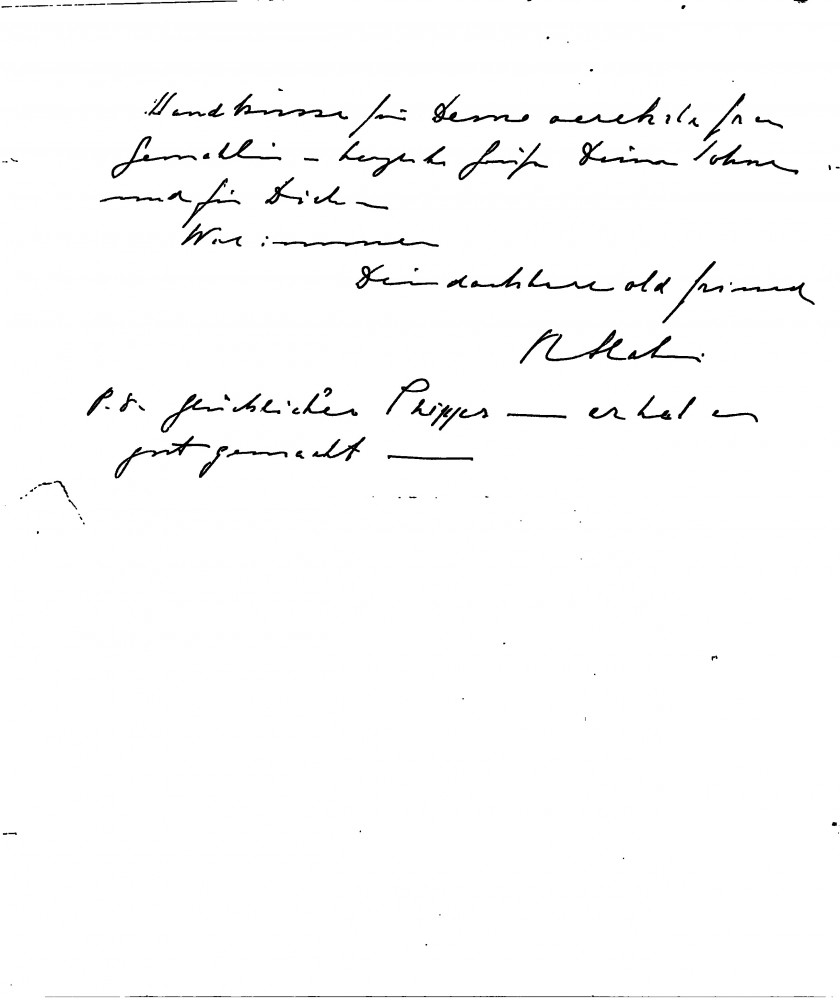 Handküsse für Deine verehrte Frau
Gemahlin – herzliche Grüße Deinen Söhnen
und für Dich –
Wie immer
Dein dankbarer old friend
P.S. glücklicher – er hat es
gut gemacht —